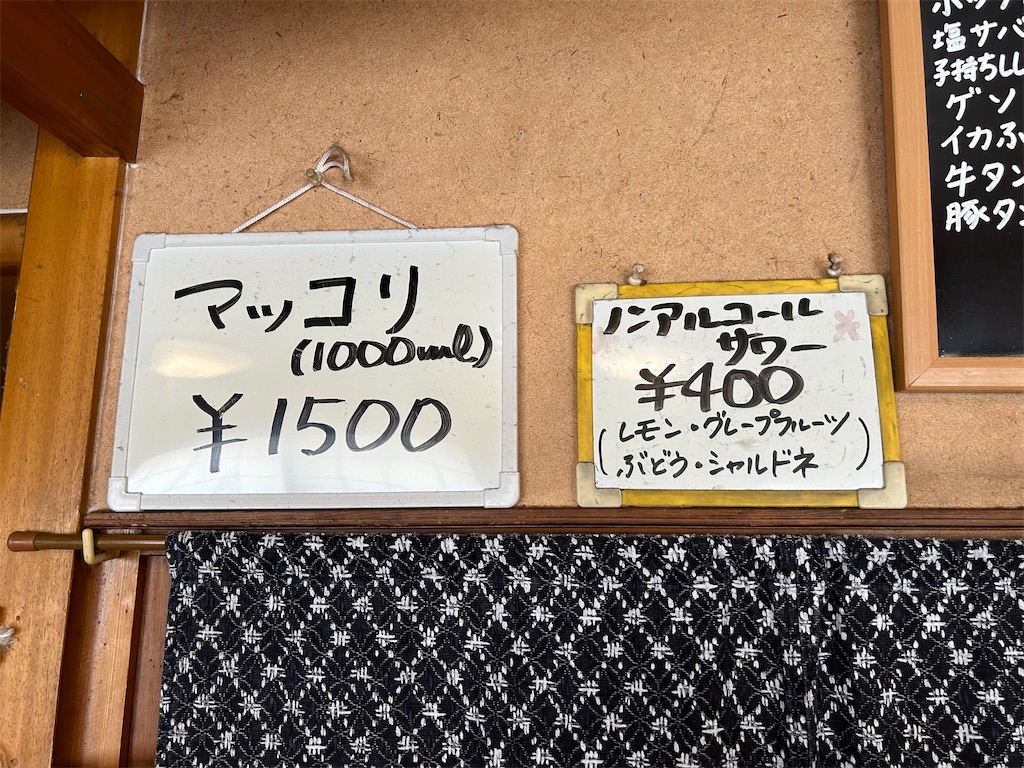 マッコリ
(1000ml)
¥1500
ノンアルコール
サワー
¥400
(レモン・グレープフルーツ
ぶどう・シャルドネ)
塩サバ
子持ちし
ゲソ
イカふ
牛タン
豚タン